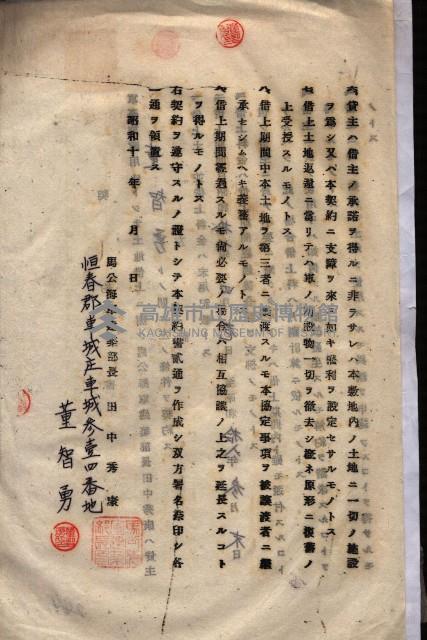 貸主ハ借主ノ承諾ヲ得ルニ非ラサレハ本敷地内ノ土地ニ一切ノ施設
ヲ為シ又ハ本契約ニ支障ヲ来ス如キ権利ヲ設定セサルモノトス
借上土地返還ニ當リテハ軍ノ施設物一切ヲ撤去シ概ネ原形ニ復舊ノ
上受授スルモノトス
借上期間中本土地ヲ第三者ニ譲渡スルモ本協定事項ヲ被譲渡者ニ継
承セシムヘキ義務アルモノトス
借上期間経過スルモ尚必要ノ場合ハ相互協議ノ上之ヲ延長スルコト
ヲ得ルモノトス
右契約ヲ遵守スルノ證トシテ本契約書貳通ヲ作成シ双方署名捺印シ各
通ヲ領置ス
昭和十 年 月 日
馬公海 部長 田中秀康
恒春郡車城庄車城参壹四番地
董智勇
高雄市立歷史博物館
KAOHSIUNG MUSEUM OF HISTORY